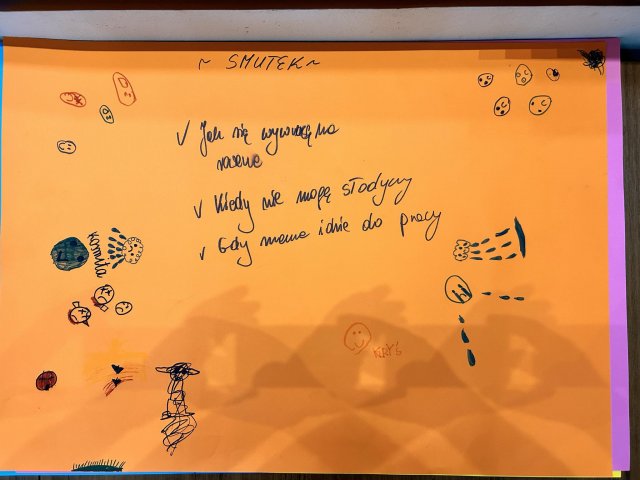 ~ SMUTEK ~
✓ Jak się wywracę na
rowerze
✓ Kiedy nie mogę słodyczy
✓ Gdy mama idzie do pracy
kometa
KRYŚ